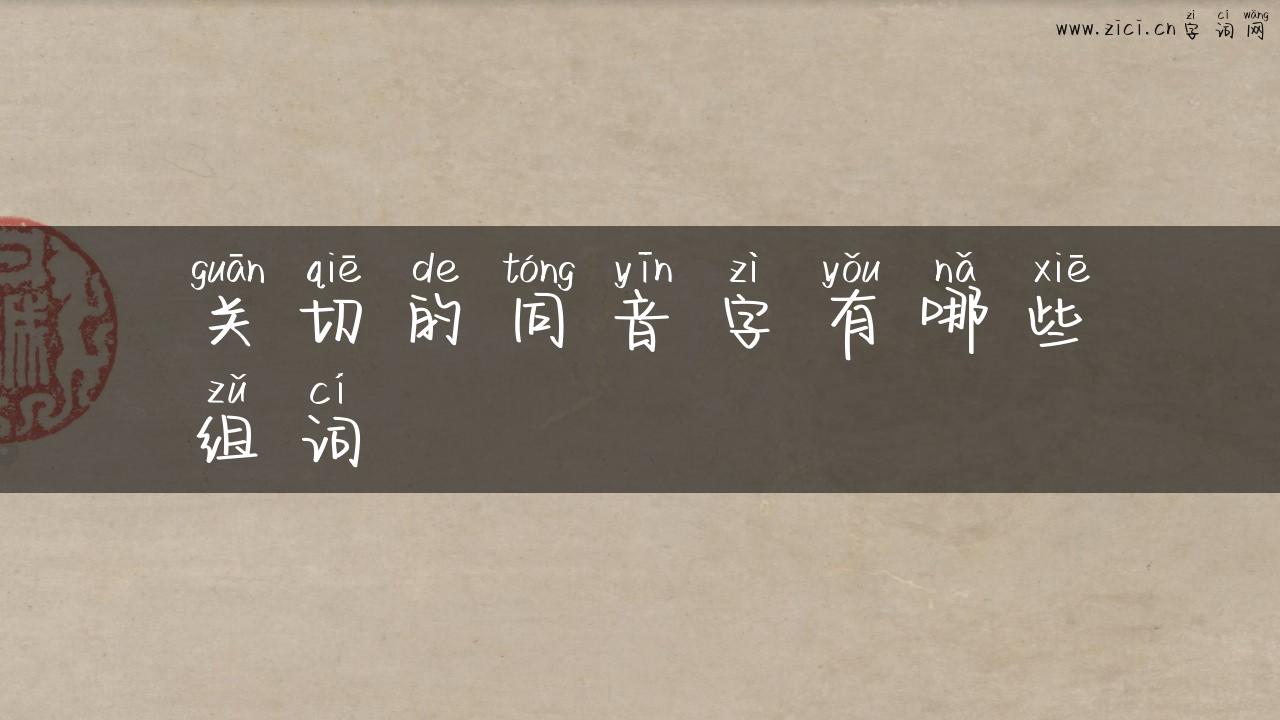 zì cí wǎng
www.zici.cn 字 词 网
guān qiē de tóng yīn zì yǒu nǎ xiē
关 切 的 同 音 字 有 哪 些
zǔ cí
组 词